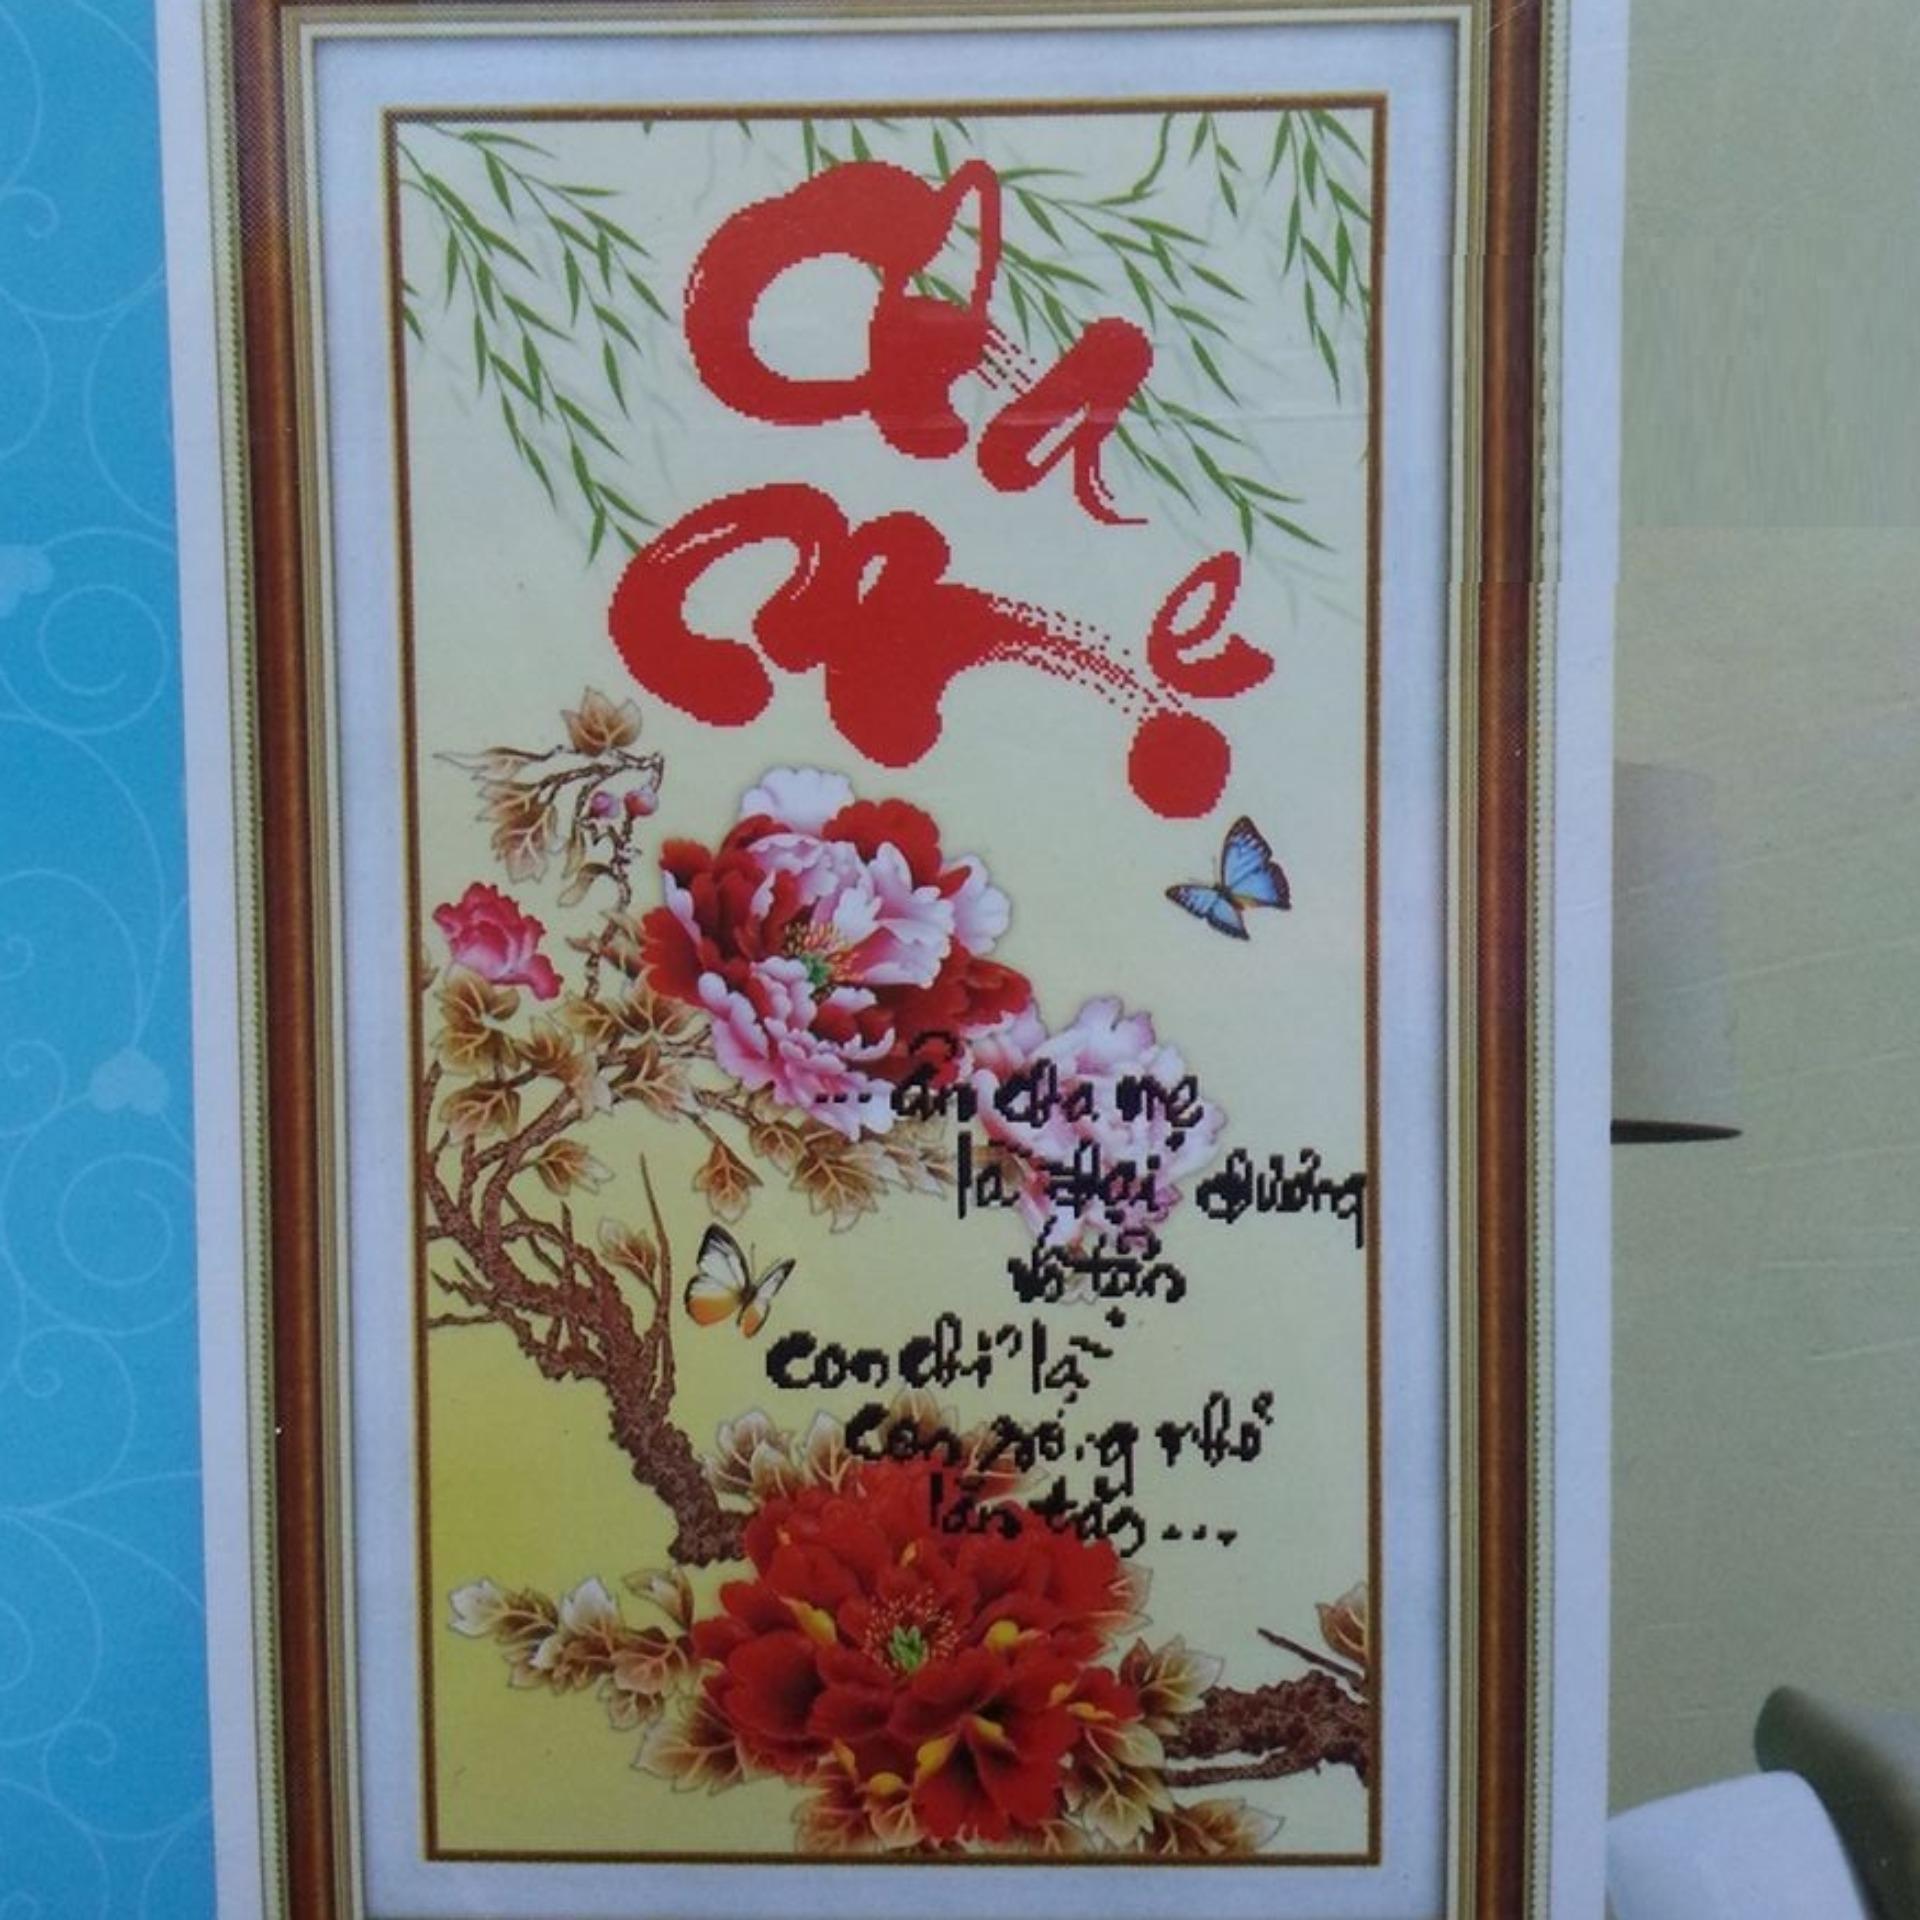 Cha
Mẹ
... ân cha mẹ
là đại dương
vô tận
con chỉ là
con sóng nhỏ
lăn tăn ...